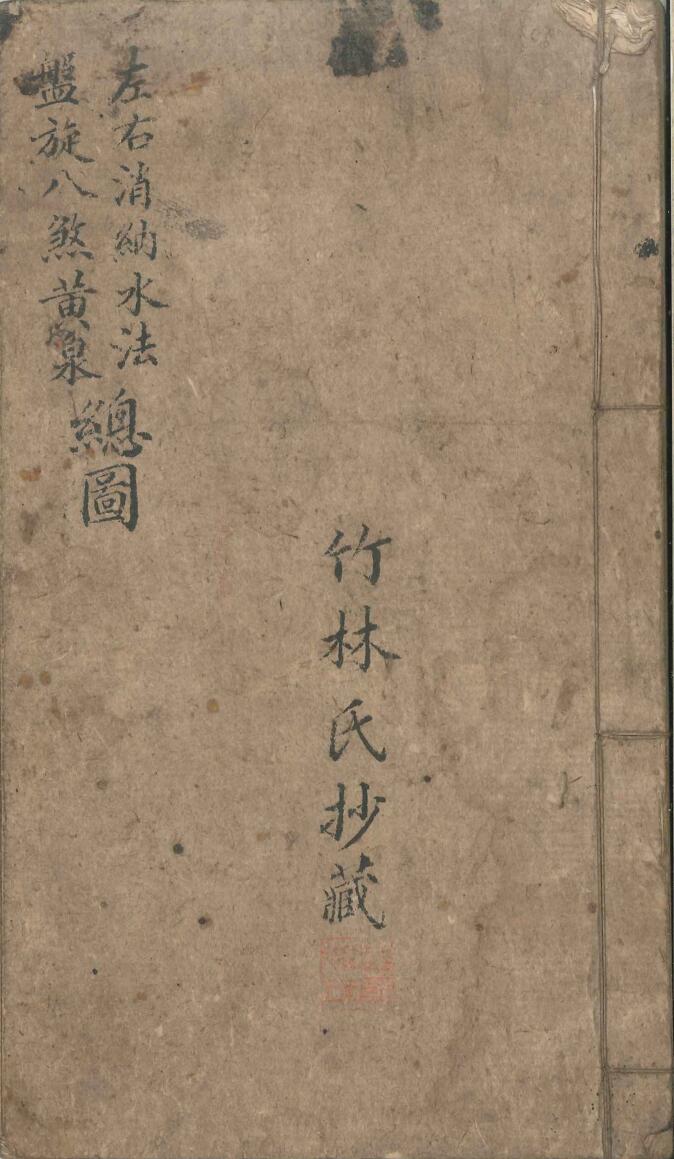 左右消納水法
盤旋八煞黄泉
總圖
竹林氏抄藏